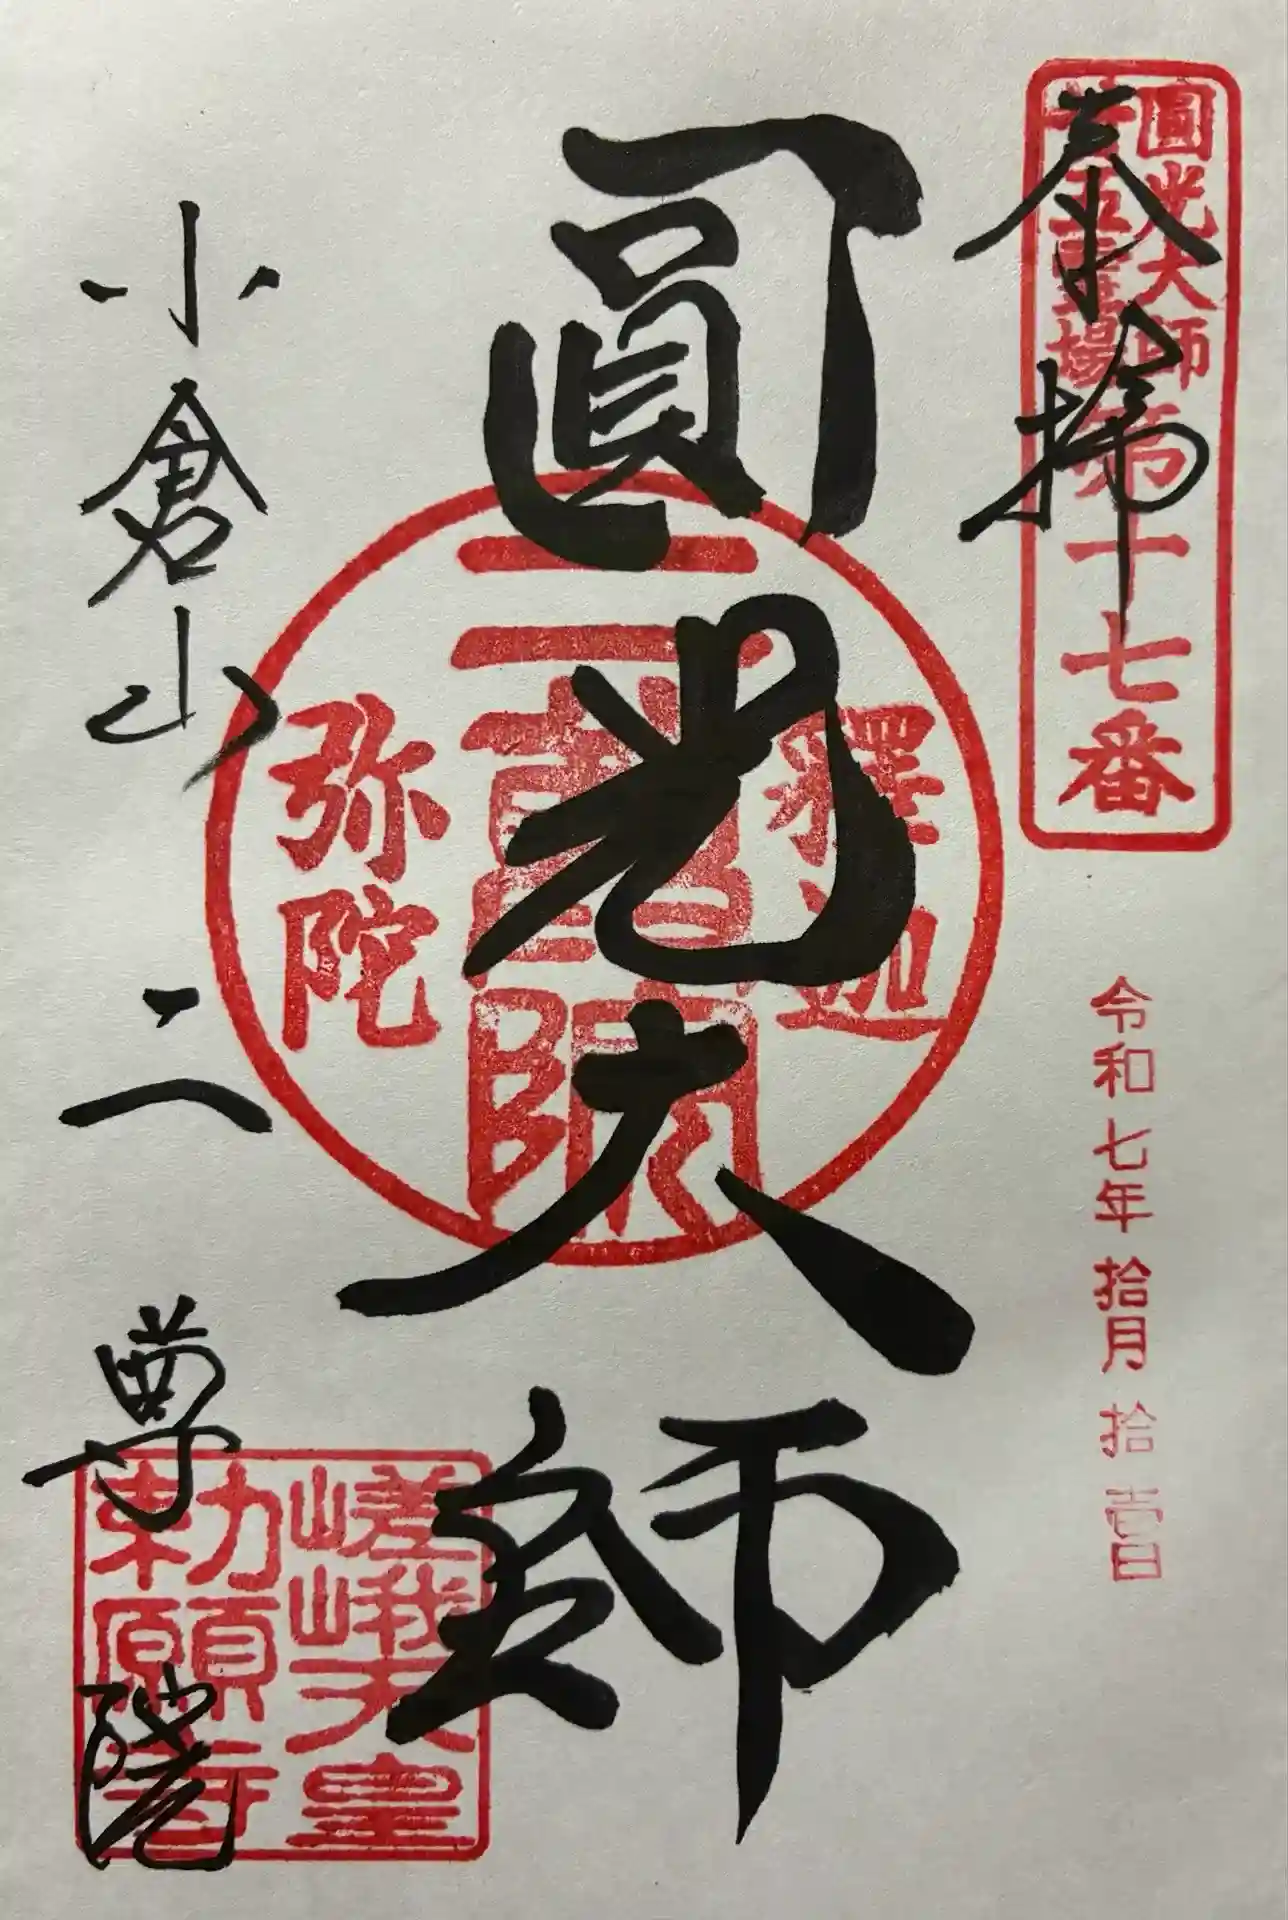 奉拝
圓光大師
廿五霊場第十七番
令和七年拾月拾壹日
圓光大師
釋迦
二尊院
弥陀
小倉山
二尊院
嵯峨天皇
勅願寺